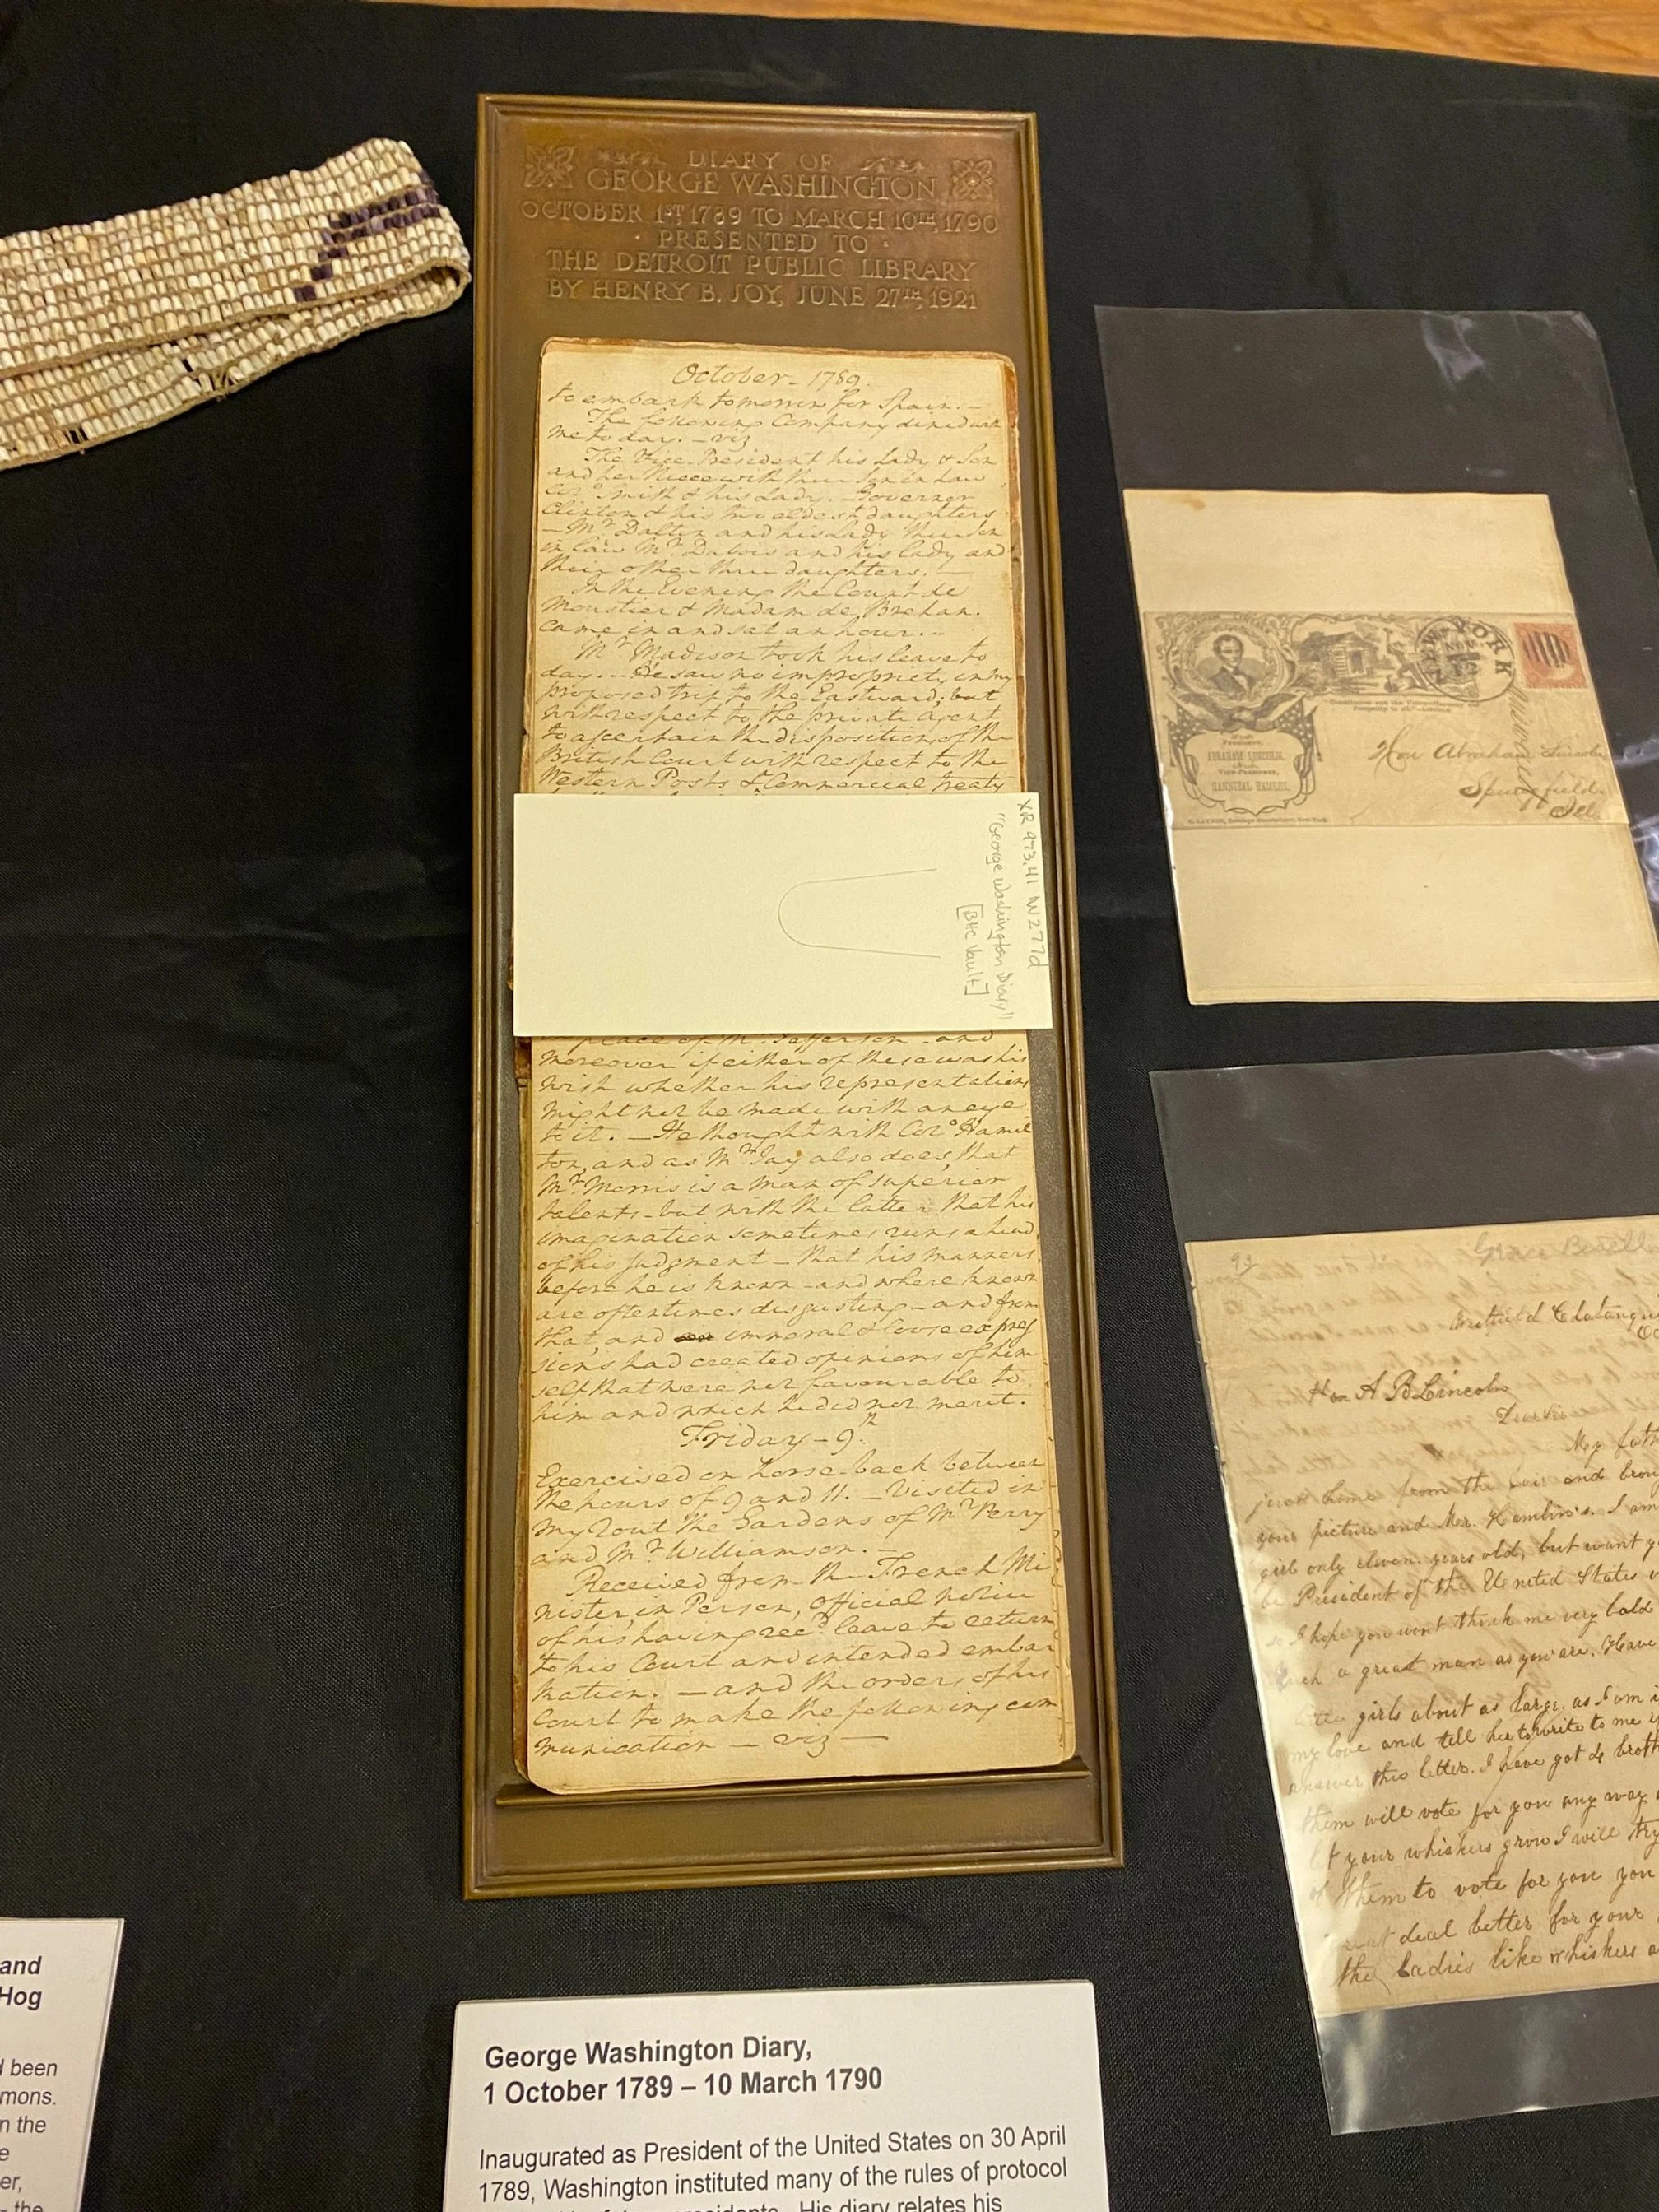 DIARY OF
GEORGE WASHINGTON
OCTOBER 1ST, 1789 TO MARCH 10TH, 1790
· PRESENTED TO ·
THE DETROIT PUBLIC LIBRARY
BY HENRY B. JOY, JUNE 27TH, 1921
October – 1789.
to embark tomorrow for Spain. –
The following Company dined with
me to day. – viz
The Vice-President his Lady & Son
and her Niece with their Son in Law
Colo. Smith & his Lady. – Governor
Clinton & his two eldest daughters
– Mr. Dalton and his Lady their Son
in law Mr. Dubois and his lady and
their other three daughters. –
In the Evening the Count de
Moustier & Madam de Brehan
came in and sat an hour. –
Mr. Madison took his leave to
day. – He saw no impropriety in my
proposed trip to the Eastward; but
with respect to the private agent
to ascertain the disposition of the
British Court with respect to the
Western Posts & Commercial treaty
XR 973.41 W277d
"George Washington Diary"
[BHC Vault]
place of Mr. Jefferson – and
moreover if either of these was his
wish whether his representations
might not be made with an eye
to it. – He thought with Colo. Hamil
ton, and as Mr. Jay also does, that
Mr. Morris is a man of superior
talents – but with the latter that his
imagination sometimes runs ahead
of his judgment – that his manners
before he is known – and where known
are oftentimes disgusting – and from
that, and immoral & loose expres
sions had created opinions of him
self that were not favourable to
him and which he did not merit.
Friday – 9th.
Exercised on horse-back between
the hours of 9 and 11. – Visited in
my rout the Gardens of Mr. Perry
and Mr. Williamson. –
Received from the French Mi
nister, in Person, official notice
of his having recd. leave to return
to his Court and intended embar
kation. – and the orders of his
Court to make the following com
munication – viz –
NEW YORK
NOV
For
President,
ABRAHAM LINCOLN.
Vice-President,
HANNIBAL HAMLIN.
Hon Abraham Lincoln
Springfield
Ill
93
Grace Bedell
Westfield Chatauqu
Hon A B Lincoln
Dear Sir
My fath
just home from the fair and brou
your picture and Mr. Hamlin's. I am
girl only eleven years old, but want y
be President of the United States
I hope you wont think me very bold
such a great man as you are. Have
little girls about as large as I am
my love and tell her to write to me
answer this letter. I have got 4 broth
them will vote for you any way
let your whiskers grow I will try
of them to vote for you you
great deal better for your
the ladies like whiskers
and
Hog
been
mons.
n the
e
er,
the
George Washington Diary,
1 October 1789 – 10 March 1790
Inaugurated as President of the United States on 30 April
1789, Washington instituted many of the rules of protocol
His diary relates his